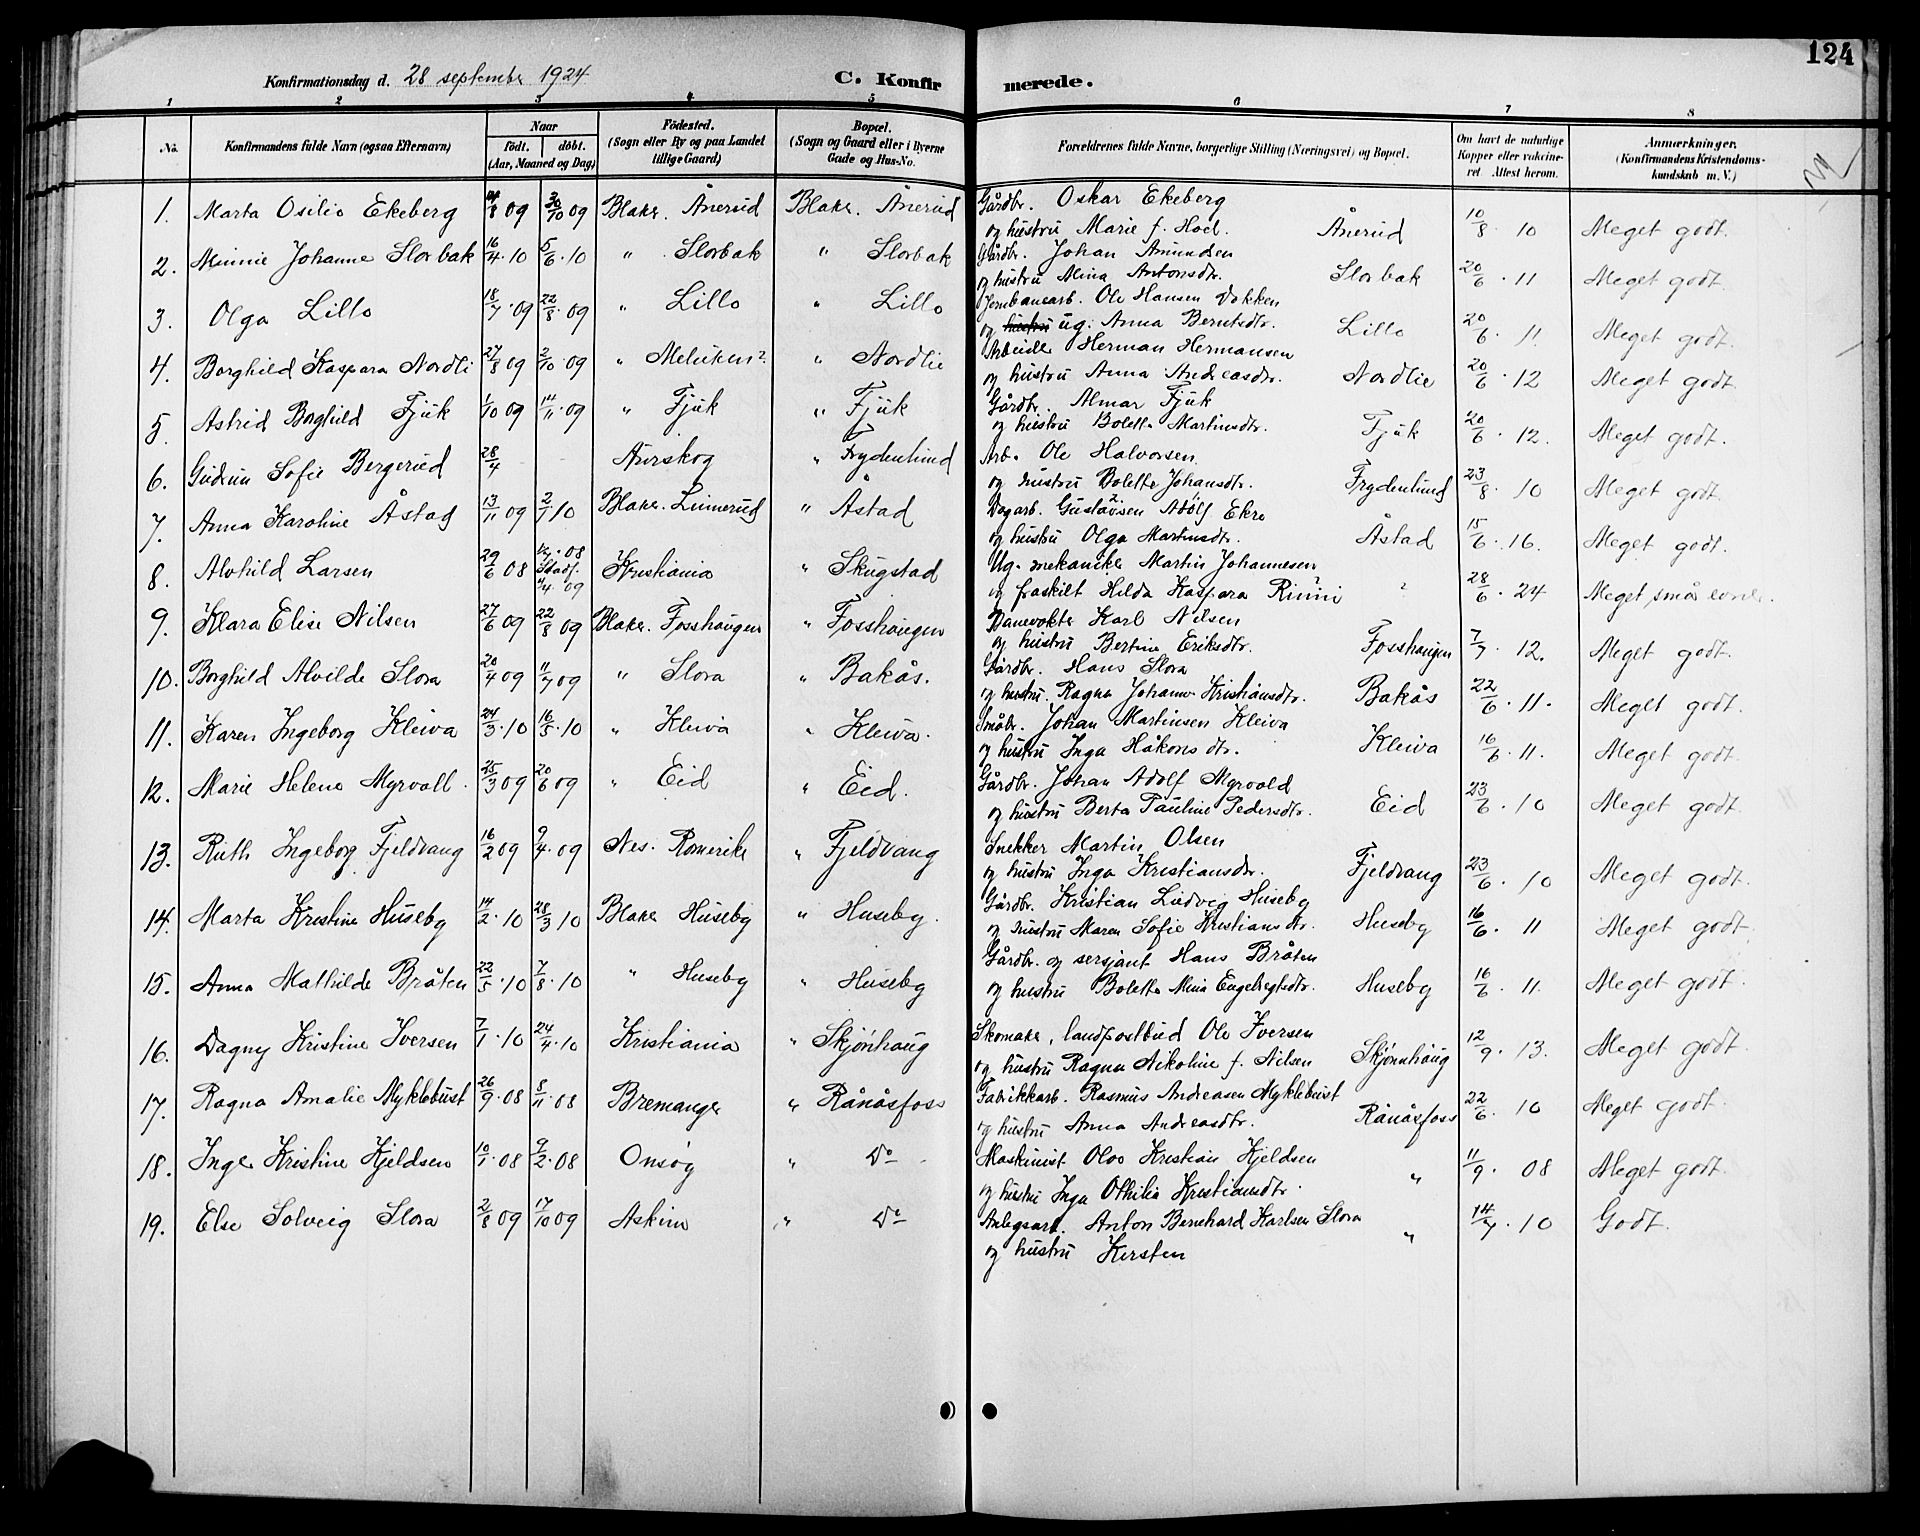 124
Konfirmationsdag d. 28 september 1924 C. Konfirmerede.
1 2 3 4 5 6 7 8
No. Konfirmandens fulde Navn (ogsaa Efternavn) Naar födt. döbt. (Aar, Maaned og Dag) Födested. (Sogn eller By og paa Landet tillige Gaard) Bopæl. (Sogn og Gaard eller i Byerne Gade og Hus-No. Forældrenes fulde Navne, borgerlige Stilling (Næringsvei) og Bopæl. Om havt de naturlige Kopper eller vaccineret Attest herom. Anmærkninger. (Konfirmandens Kristendomskundskab m. V.)
1. Marta Osilie Ekeberg /8 09 30/10 09 Blaker. Ånerud Blaker. Ånerud Gårdbr. Oskar Ekeberg
og hustru Marie f. Hoel. Ånerud 10/8 10 Meget godt.
2. Minnie Johanne Slorbak 16/4 10 5/6 10 " Slorbak " Slorbak Gårdbr. Johan Amundsen
og hustru Mina Antonsdtr. Slorbak 20/6 11 Meget godt.
3. Olga Lillo 18/7 09 22/8 09 " Lillo " Lillo Jernbanearb. Ole Hansen Dokken
og hustru ug. Anna Berntsdtr. Lillo 20/6 11 Meget godt.
4. Borghild Kaspara Nordli 27/8 09 2/10 09 " " Nordlie Arbeider Herman Hermansen
og hustru Anna Andreasdtr. Nordlie 20/6 12 Meget godt.
5. Astrid Borghild Fjuk 1/10 09 14/11 09 " Fjuk " Fjuk Gårdbr. Almar Fjuk
og hustru Bolette Martinsdtr. Fjuk 20/6 12. Meget godt.
6. Gudrun Sofie Bergerud 28/4 Aurskog " Frydenlund Arb. Ole Halvorsen
og hustru Bolette Johansdtr. Frydenlund 23/8 10 Meget godt.
7. Anna Karoline Åstad 13/11 09 2/1 10 Blaker. Linnerud " Åstad Dagarb. Gustavsen Adolf Ekre
og hustru Olga Martinsdtr. Åstad 15/6 16. Meget godt.
8. Alvhild Larsen 29/6 08 08 Stadf. /4 09 Kristiania " Skugstad Ug. mekaniker Martin Johannesen
og fraskilt Hilda Kaspara " 28/6 24 Meget små evner.
9. Klara Elise Nilsen 27/6 09 22/8 09 Blaker. Fosshaugen " Fosshaugen Banevokter Karl Nilsen
og hustru Bertine Eriksdtr. Fosshaugen 7/7 12. Meget godt.
10. Borghild Alvilde Slora 20/4 09 11/7 09 " Slora " Bakås. Gårdbr. Hans Slora
og hustru Ragna Johanne Kristiansdtr. Bakås 22/6 11. Meget godt.
11. Karen Ingeborg Kleiva 24/3 10 16/5 10 " Kleiva " Kleiva. Småbr. Johan Martinsen Kleiva
og hustru Inga Håkonsdtr. Kleiva 16/6 11. Meget godt.
12. Marie Helene Myrvoll 25/3 09 20/6 09 " Eid " Eid. Gårdbr. Johan Adolf Myrvold
og hustru Berta Pauline Pedersdtr. Eid 23/6 10 Meget godt.
13. Ruth Ingeborg Fjeldvang 16/2 09 9/4 09 Nes. Romerike " Fjeldvang Snekker Martin Olsen
og hustru Inga Kristiansdtr. Fjeldvang 23/6 10 Meget godt.
14. Marta Kristine Huseby 14/2 10 28/3 10 Blaker Huseby " Huseby. Gårdbr. Kristian Ludvig Huseby
og hustru Maren Sofie Kristiansdtr. Huseby 16/6 11 Meget godt.
15. Anna Mathilde Bråten 22/5 10 7/8 10 " Huseby " Huseby Gårdbr. og sersjant Hans Bråten
og hustru Bolette Mina Engebretsdtr. Huseby 16/6 11. Meget godt.
16. Dagny Kristine Iversen 7/1 10 24/4 10 Kristiania " Skjønhaug Skomaker, landpostbud Ole Iversen
og hustru Ragna Nikoline f. Nilsen Skjønnhaug 12/9 13. Meget godt.
17. Ragna Amalie Myklebust 26/9 08 8/11 08 Bremanger " Rånåsfoss Fabrikkarb. Rasmus Andreasen Myklebust
og hustru Anna Andreasdtr. Rånåsfoss 22/6 10 Meget godt.
18. Inger Kristine Kjeldsen 10/1 08 9/2 08 Onsøy " Do Maskinist Olav Kristian Kjeldsen
og hustru Inga Othilia Kristiansdtr. " 11/9 08 Meget godt.
19. Else Solveig Slora 2/8 09 17/10 09 Askim " Do Anlegsarb. Anton Bernhard Karlsen Slora
og hustru Kersten " 14/7 10 Godt.